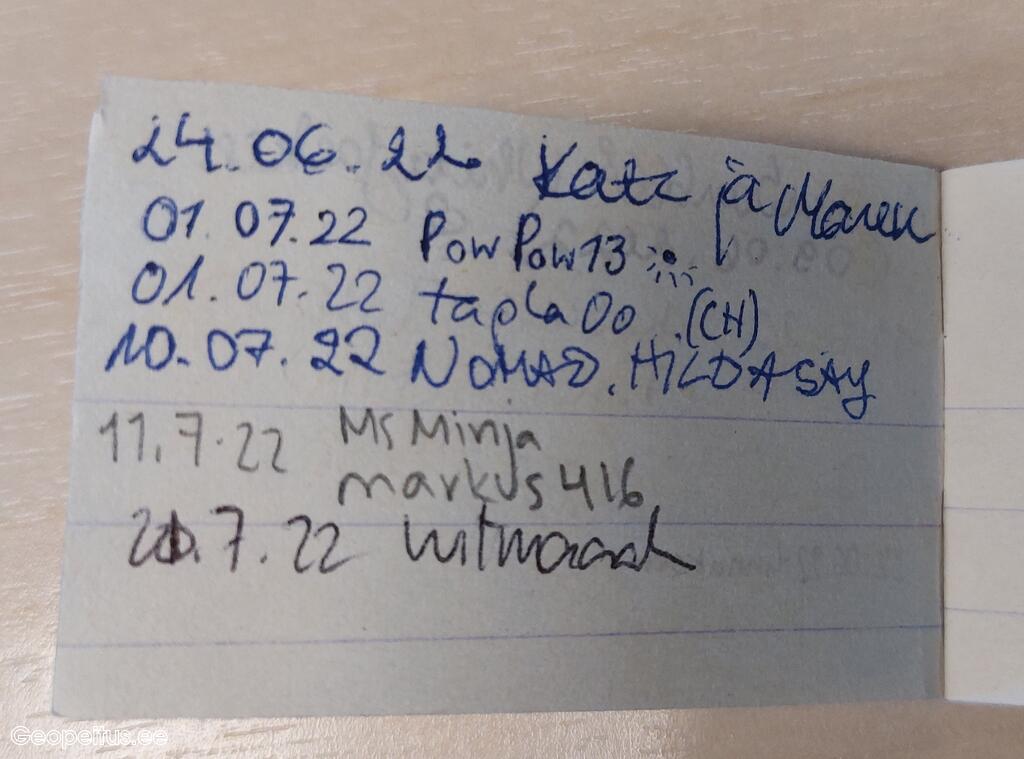 24.06.22 Katz ja Marek
01.07.22 PowPow13
01.07.22 tapla00 (CH)
10.07.22 NOMAD.HILDASAY
11.7.22 MsMinja
markus416
7.22
Geopeitus.ee